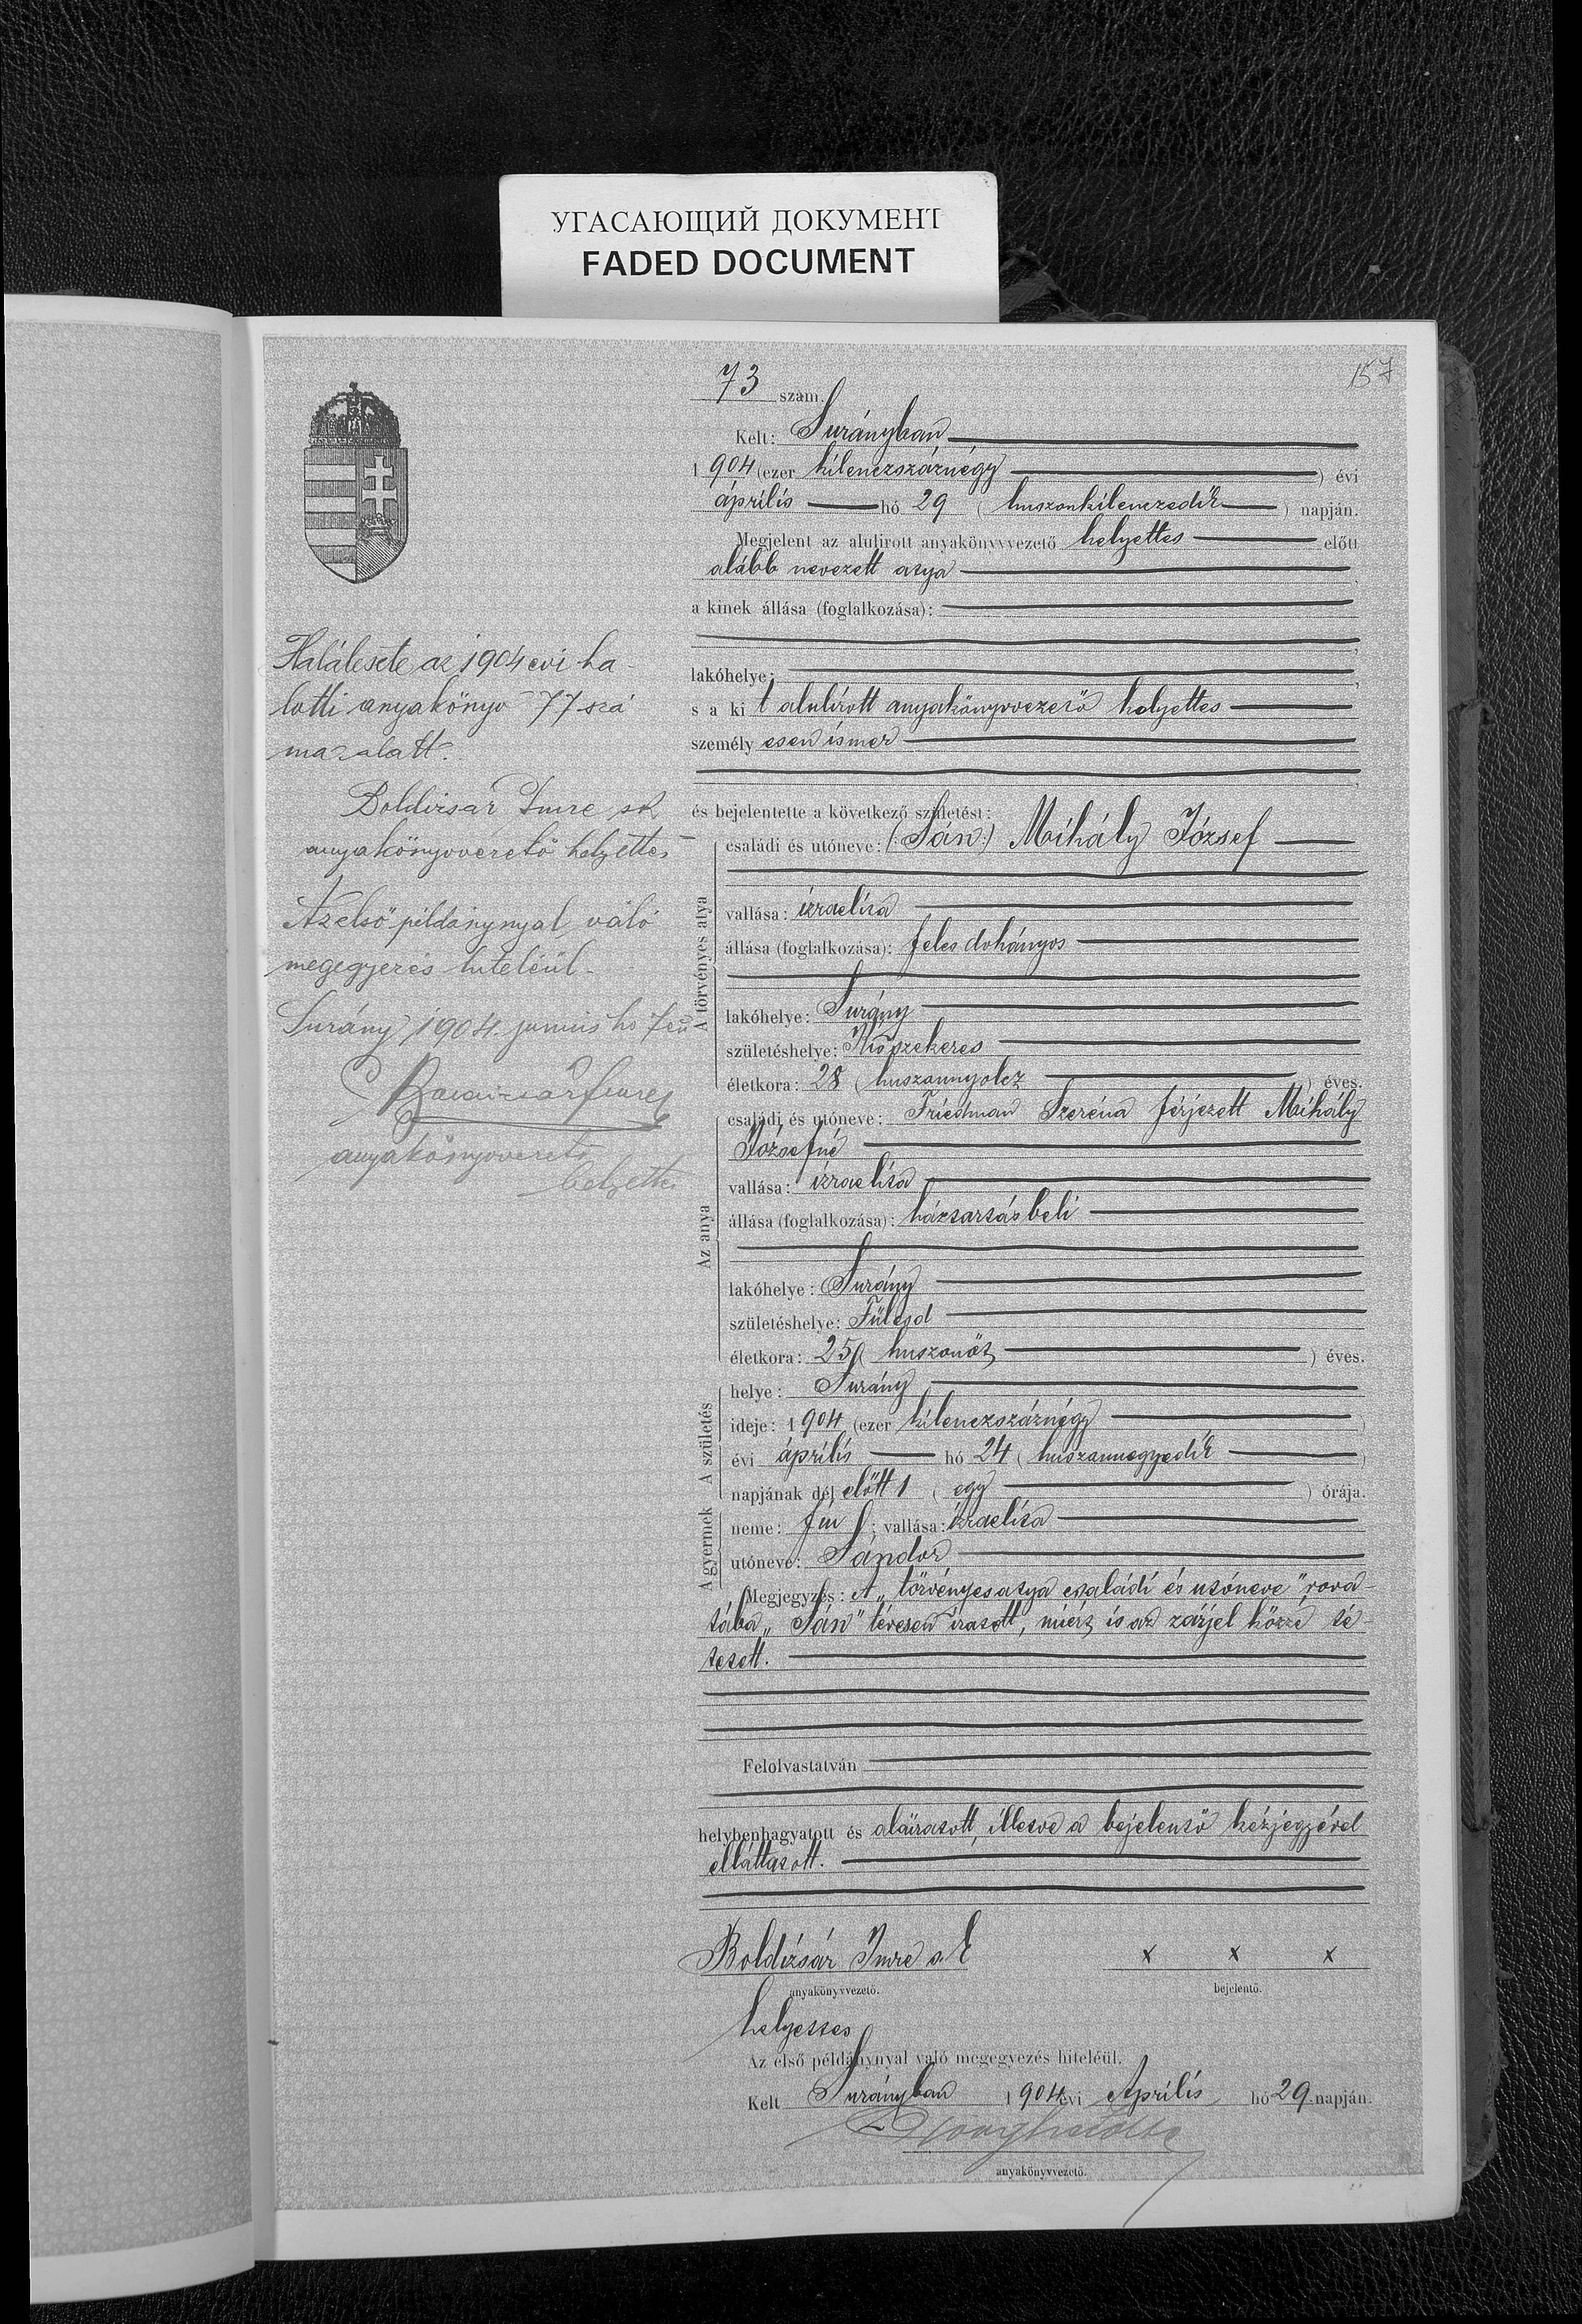 УГАСАЮЩИЙ ДОКУМЕНТ
FADED DOCUMENT
157
73 szám.
Kelt: Surányban
1904 (ezer kilenczszáznégy) évi
április hó 29 (huszonkilenczedik) napján.
Megjelent az alulirott anyakönyvvezető helyettes előtt
alább nevezett atya
a kinek állása (foglalkozása):
lakóhelye:
s a kit alulírott anyakönyvvezető helyettes
személyesen ismer
és bejelentette a következő születést:
A törvényes atya
családi és utóneve: (:Sán:) Mihály József
vallása: izraelita
állása (foglalkozása): feles dohányos
lakóhelye: Surány
születéshelye: Kőszekeres
életkora: 28 (huszonnyolcz) éves.
Az anya
családi és utóneve: Friedman Szeréna férjezett Mihály
Józsefné
vallása: izraelita
állása (foglalkozása): háztartásbeli
lakóhelye: Surány
születéshelye: Fülesd
életkora: 25 (huszonöt) éves.
A születés
helye: Surány
ideje: 1904 (ezer kilenczszáznégy)
évi április hó 24 (huszonnegyedik)
napjának dél előtt 1 (egy) órája.
A gyermek
neme: fiú; vallása: izraelita
utóneve: Sándor
Megjegyzés: A „törvényes atya családi és utóneve" rova-
tába „Sán" tévesen íratott, miért is az zárjel közzé té-
tetett.
Felolvastatván
helybenhagyatott és aláíratott, illetve a bejelentő kézjegyével
elláttatott.
Boldizsár Imre sk x x x
anyakönyvvezető. bejelentő.
helyettes
Az első példánynyal való megegyezés hiteléül.
Kelt Surányban 1904 évi Április hó 29 napján.
anyakönyvvezető.
Halálesete az 1904 évi ha-
lotti anyakönyv 77 szá
ma alatt.
Boldizsár Imre sk
anyakönyvvezető helyettes
Az első példánynyal való
megegyezés hiteléül-
Surány 1904. junius hó 7én
Boldizsár Imre
anyakönyvvezető
helyettes